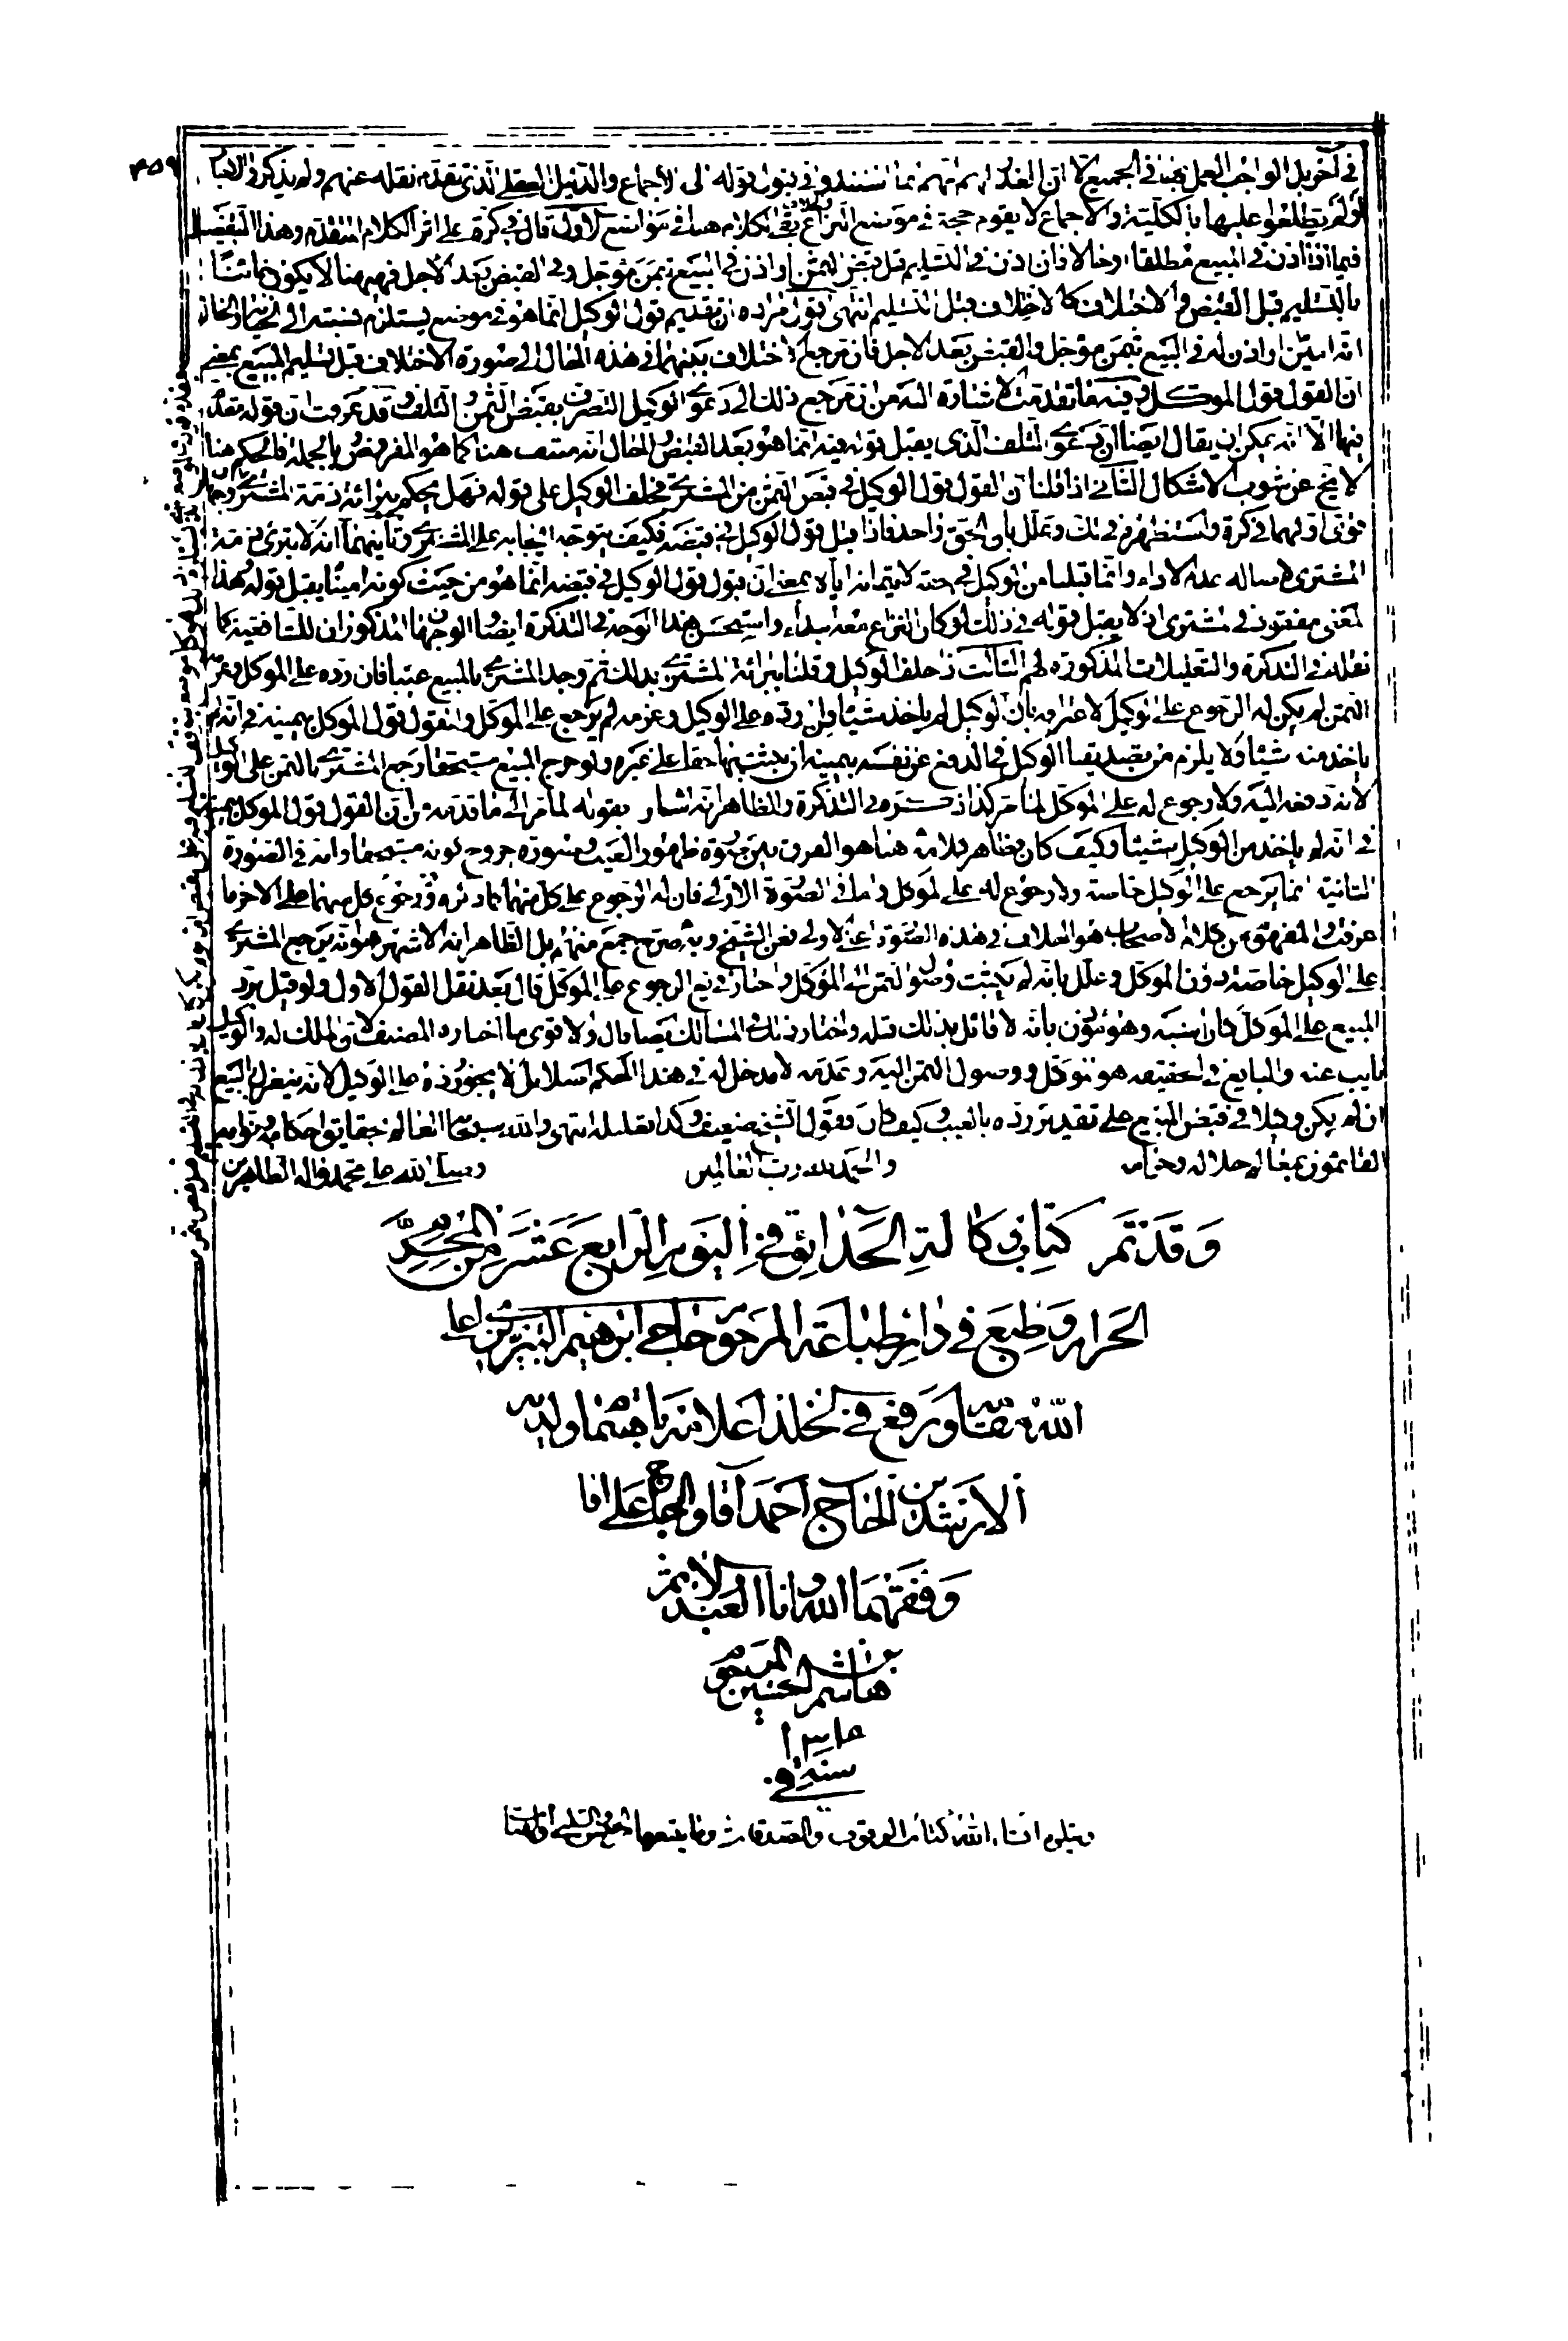 ٣٥٩
في آخر بل الواجب العمل بها في الجميع الا ان العذر لهم انهم انما استندوا في قبول قوله الى الاجماع والدليل العقلي الذي تقدم نقله عنهم ولم يذكروا الاخبار
ولم يطلعوا عليها بالكلية والاجماع لا يقوم حجة في موضع النزاع بقي الكلام هنا في مواضع الاول قال في كرة على اثر الكلام المتقدم وهذا التفصيل
فيما اذا اذن في البيع مطلقا او حالا فان اذن في التسليم قبل قبض الثمن او اذن في البيع بثمن مؤجل وفي القبض بعد الاجل فهيهنا لا يكون خائنا
بالتسليم قبل القبض والاختلاف كالاختلاف قبل التسليم انتهى اقول مراده ان تقديم قول الوكيل انما هو في موضع يستلزم نسبته الى الخيانة والحال
انه امين او اذن له في البيع بثمن مؤجل والقبض بعد الاجل فان مرجع الاختلاف بينهما في هذه الحال الى صورة الاختلاف قبل تسليم المبيع بمعنى
ان القول قول الموكل وفيه ما تقدمت الاشارة اليه من ان مرجع ذلك الى دعوى الوكيل التصرف بقبض الثمن والتلف وقد عرفت ان قوله مقدم
فيهما الا انه يمكن ان يقال ايضا ان دعوى التلف الذي يقبل قوله فيه انما هو بعد القبض والحال انه منتف هنا كما هو المفروض وبالجملة فالحكم هنا
لا يخ عن شوب الاشكال الثاني اذا قلنا ان القول قول الوكيل في قبض الثمن من المشتري فحلف الوكيل على قوله فهل يحكم ببرائة ذمة المشتري وجهان
قوى اولهما في كرة واستظهره في لك وعلل بان الحق واحد فاذا قبل قول الوكيل في قبضه فكيف يتوجه ايجابه على المشتري وثانيهما انه لا تبرئ ذمة
المشتري لاصالة عدم الاداء وانما قبلنا من الوكيل في حقه لايتمانه اياه بمعنى ان قبول قول الوكيل في قبضه انما هو من حيث كونه امينا يقبل قوله وهذا
المعنى مفقود في المشتري اذ لا يقبل قوله في ذلك لو كان النزاع معه ابتداء واستحسن هذا الوجه في التذكرة ايضا والوجهان المذكوران للشافعية كما
نقله في التذكرة والتعليلات المذكورة لهم الثالث اذا حلف الوكيل وقلنا ببرائة المشتري بذلك ثم وجد المشتري بالمبيع عيبا فان رده على الموكل وغرمه
الثمن لم يكن له الرجوع على الوكيل لاعترافه بان الوكيل لم ياخذ شيئا وان رده على الوكيل وغرمه لم يرجع على الموكل والقول قول الموكل بيمينه في انه لم
ياخذ منه شيئا ولا يلزم من تصديقنا الوكيل في الدفع عن نفسه بيمينه ان يثبت بها حقا على غيره ولو خرج المبيع مستحقا رجع المشتري بالثمن على الوكيل
لانه دفعه اليه ولا رجوع له على الموكل لما مر كذا ذكره في التذكرة والظاهر انه اشار بقوله لما مر الى ما قدمه من ان القول قول الموكل بيمينه
في انه لم ياخذ من الوكيل شيئا وكيف كان فظاهر كلامه هنا هو الفرق بين صورة ظهور العيب وصورة خروج كونه مستحقا وانه في الصورة
الثانية انما يرجع على الوكيل خاصة ولا رجوع له على الموكل واما في الصورة الاولى فان له الرجوع على كل منهما كما ذكره ورجوع كل منهما على الاخر ما
عرفت والمفهوم من كلام الاصحاب هو الخلاف في هذه الصورة اعني الاولى فعن الشيخ وبه صرح جمع منهم بل الظاهر انه الاشهر هو انه يرجع المشتري
على الوكيل خاصة دون الموكل وعلل بانه لم يثبت وصول الثمن الى الموكل واختار في يع الرجوع على الموكل قال بعد نقل القول الاول ولو قيل برد
المبيع على الموكل كان اشبه وهو مؤذن بانه لا قائل بذلك قبله واختار ذلك في المسالك ايضا قال والاقوى ما اختاره المصنف لان الملك له والوكيل
نايب عنه والبايع في الحقيقة هو الموكل ووصول الثمن اليه وعدمه لا مدخل له في هذا الحكم اصلا بل لا يجوز رده على الوكيل لانه ينعزل بالبيع
ان لم يكن وكيلا في قبض المبيع على تقدير رده بالعيب وكيف كان فقول الشيخ ضعيف وكذا تعليله انتهى والله سبحانه العالم بحقايق احكامه ونوابه
القائمون بمعالم حلاله وحرامه والحمد لله رب العالمين وصلى الله على محمد واله الطاهرين
وقد تمر كتاب وكالة الحدائق في اليوم الرابع عشر من المحرم
الحرام وطبع في دار طباعة المرحوم حاجي ابرهيم التبريزي اعلى
الله مقامه ورفع في الخلد اعلامه باهتمام ولديه
الارشدين الحاج احمد آقا والحاج علي اقا
وفقهما الله وانا العبد الاثم
هاشم بن الحسين
سنة في
ويتلوه انشاء الله كتاب الوقوف والصدقات وما يتبعها